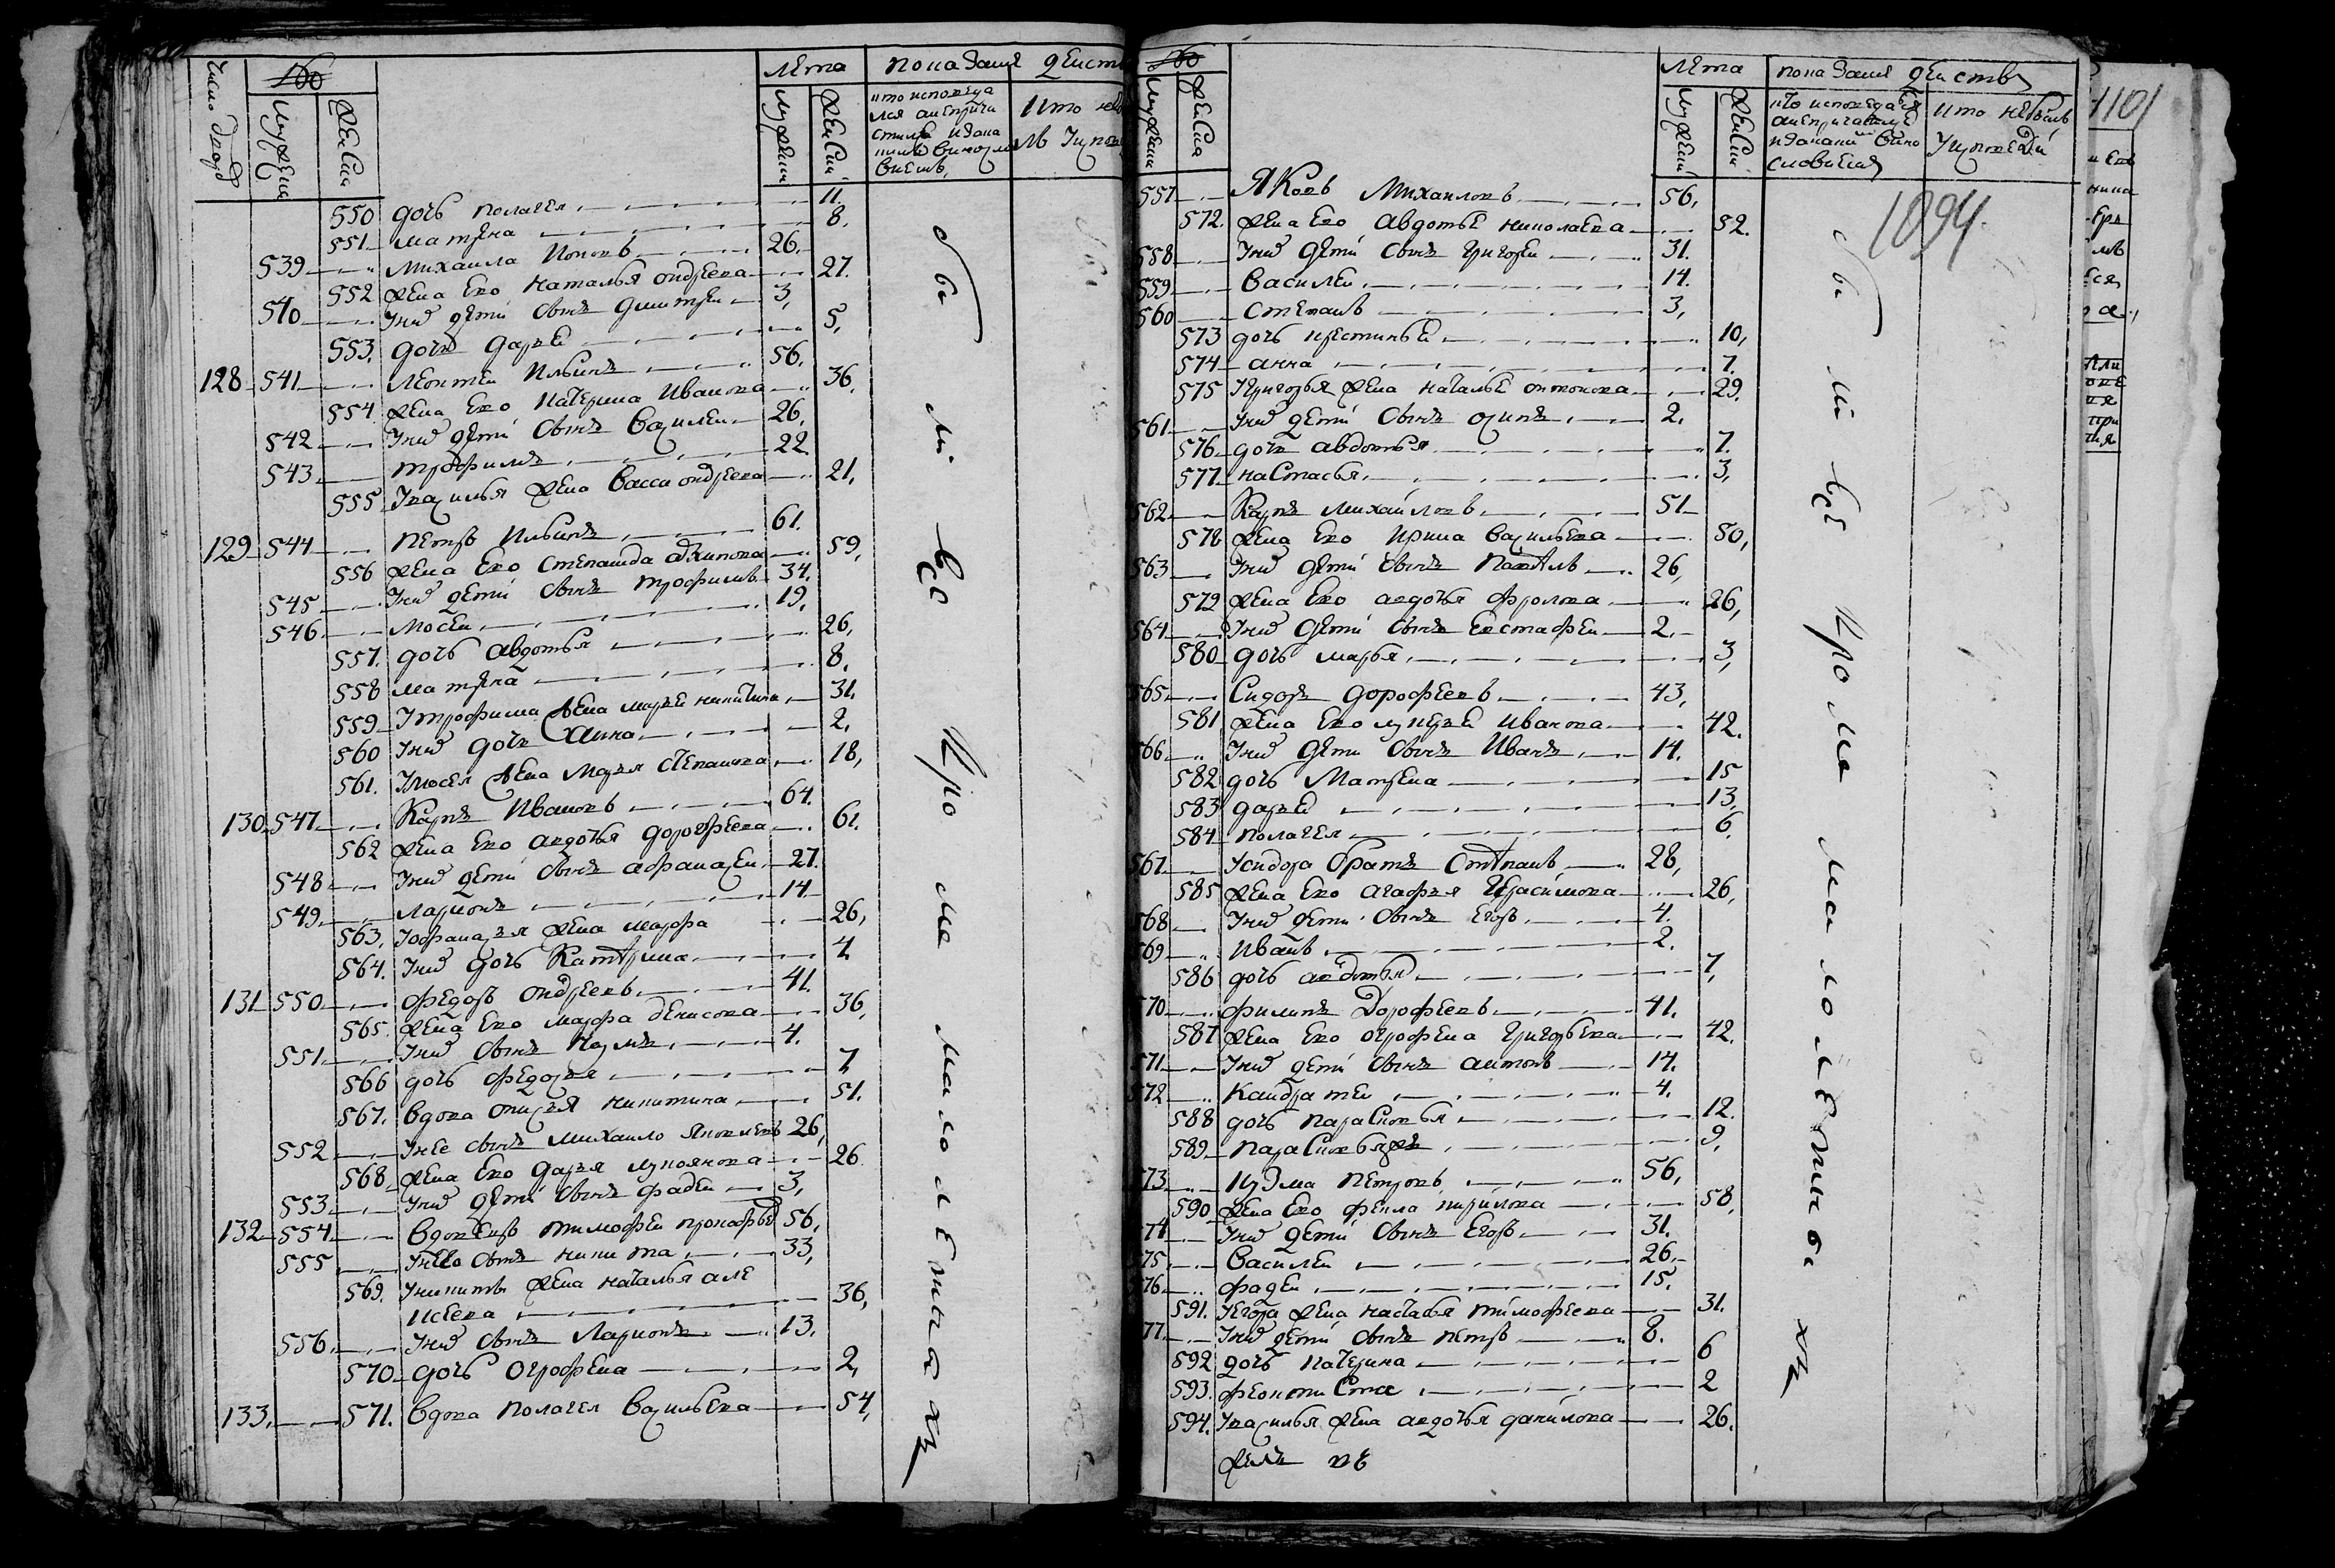 число дворовъ
мужеска
женска
лета
мужеска
женска
показание действ
550 дочь полагея 11.
551 матрена 8.
539 михаила поповъ 26.
552 жена ево наталья ондреева 27.
540 Униѣ дети сынъ дмитреи 3,
553. дочь дарьѣ 5,
128 541 леонтеи ильинъ 56.
554 жена ево катерина иванова 36,
542 Униѣ дети сынъ василеи 26,
543 трофимъ 22.
555 Увасилья жена васса ондреева 21,
129 544 петръ ильинъ 61.
556 жена ево степанида 59,
545 Униѣ дети сынъ трофимъ 34.
546 мосеи 19.
557. дочь авдотья 26,
558 матрена 8.
559 Утрофима жена марьѣ никитина 31.
560 Униѣ дочь анна 2.
561. Умосея жена марья степанова 18,
130 547 карпъ ивановъ 64.
562 жена ево авдотья дорофеева 61.
548 Униѣ дети сынъ афанасеи 27.
549 ларионъ 14
563, Уофанасья жена марфа 26,
564. Униѣ дочь катерина 4
131 550 федоръ ондреевъ 41.
565. жена ево марфа денисова 36,
551 Униѣ сынъ 4.
566 дочь федосья 7
567. вдова никитина 51.
552 Унее сынъ михаило яковлевъ 26,
568 жена ево дарья лукоянова 26
553 Униѣ дети сынъ фадеи 3,
132 554 вдовецъ тимофеи 56,
555 Унево сынъ никита 33,
569. Уникиты жена наталья але
ксеева 36,
556 Униѣ сынъ ларионъ 13.
570 дочь огрофена 2,
133. 571. вдова полагея васильева 54,
обы ли все кроме малолетныхъ
мужеска
женска
лета
мужеска
женска
показание действ
1094
1101
557 яковъ михаиловъ 56,
572. жена ево авдотьѣ николаева 52.
558 Униѣ дети сынъ григореи 31.
559 василеи 14.
560 степанъ 3,
573 дочь крестиньѣ 10,
574 анна 7.
575 Угригорья жена натальѣ онтонова 29.
561 Униѣ дети сынъ осипъ 2.
576 дочь авдотья 7.
577 настасья 3,
562 карпъ михаиловъ 51
578 жена ево ирина васильева 50,
563 Униѣ дети сынъ павелъ 26,
579 жена ево авдотья фролова 26,
564 Униѣ дети сынъ евстафеи 2.
580 дочь марья 3,
565 сидоръ дорофеевъ 43,
581 жена ево лукерьѣ иванова 42.
566 Униѣ дети сынъ иванъ 14.
582 дочь матрена 15
583 дарьѣ 13,
584 полагея 6.
567 Усидора братъ степанъ 28,
585 жена ево агафья герасимова 26,
568 Униѣ дети сынъ егоръ 4.
569 иванъ 2.
586 дочь авдотья 7,
570 филипъ дорофеевъ 41.
587 жена ево огрофена григорьева 42.
571 Униѣ дети сынъ антонъ 14.
572 кандратеи 4.
588 дочь парасковья 12.
589 парасковья же 9,
573 кузма петровъ 56,
590 жена ево фекла кирилова 58,
574 Униѣ дети сынъ егоръ 31.
575 василеи 26.
576 фадеи 15.
591. Уегора жена настасья тимофеева 31.
577 Униѣ дети сынъ петръ 8.
592 дочь катерина 6
593. феоктиста 2
594. Увасилья жена авдотья данилова 26.
обы ли все кроме малолетныхъ